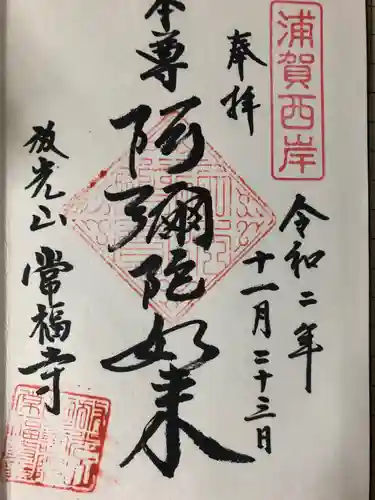 浦賀西岸
奉拝
令和二年
十一月二十三日
本尊
阿彌陀如来
放光山
常福寺